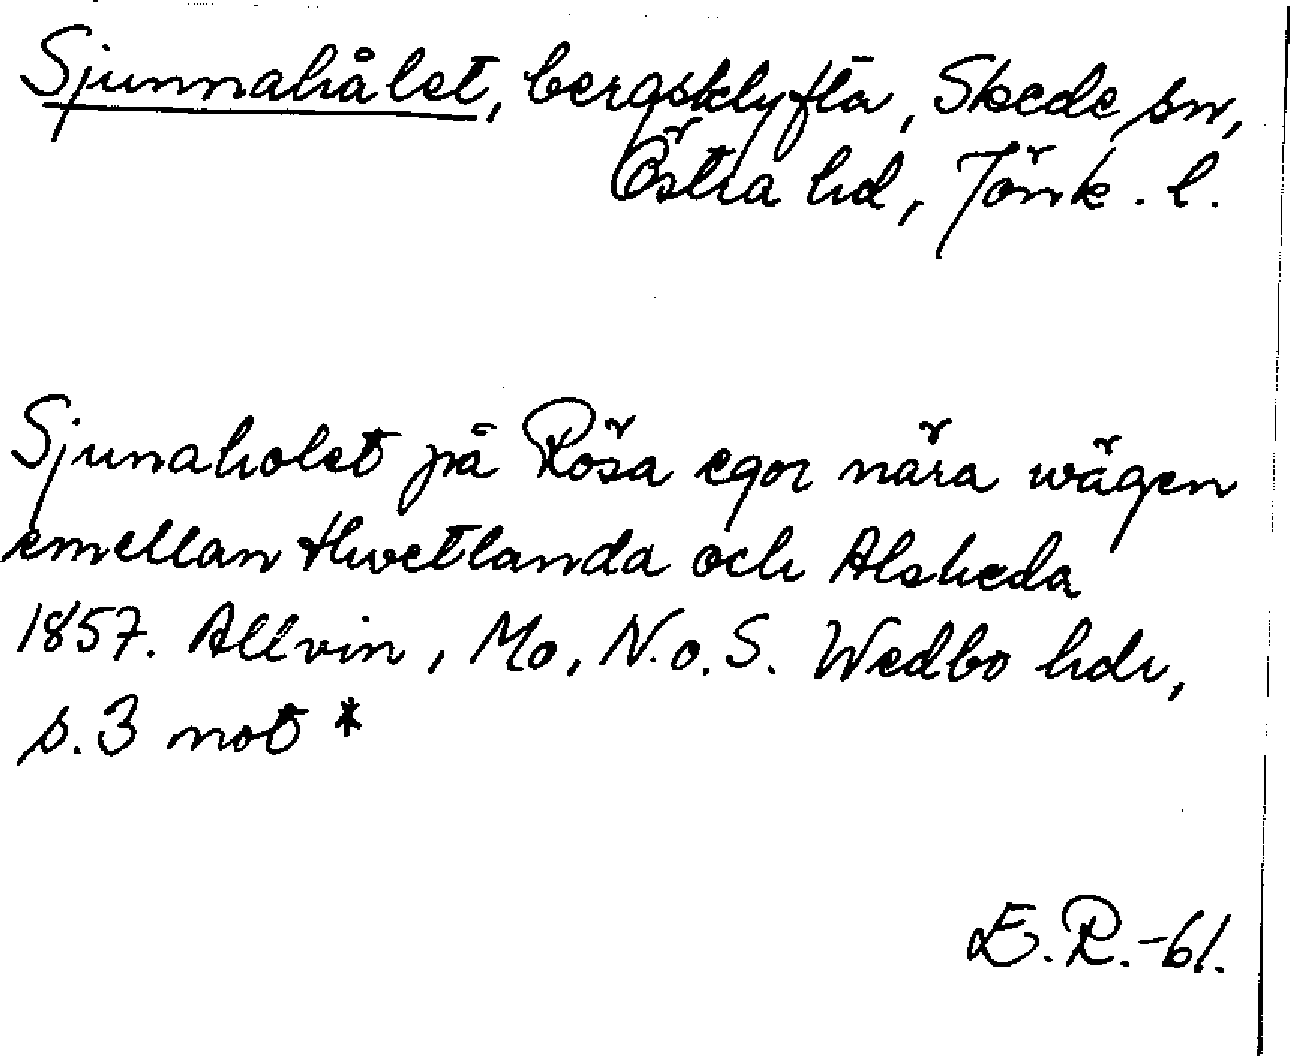 Sjunnahålet, bergsklyfta, Skede sn,
Östra hd, Jönk. l.
Sjunaholet på Rösa egor nära wägen
emellan Hwetlanda och Alsheda
1857. Allvin, Mo, N. o. S. Wedbo hdr,
s. 3 not *
E. R. -61.